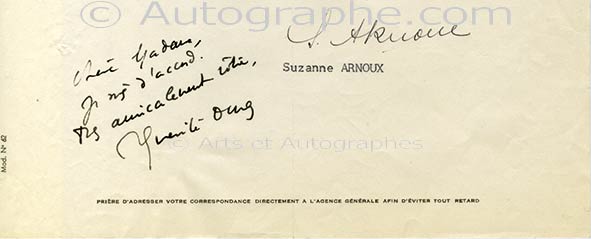 © Autographe.com
S. Arnoux
Suzanne ARNOUX
Chère Madame,
Je suis d'accord.
Très amicalement vôtre,
© Arts et Autographes
Mod. N° 62
PRIÈRE D'ADRESSER VOTRE CORRESPONDANCE DIRECTEMENT A L'AGENCE GÉNÉRALE AFIN D'ÉVITER TOUT RETARD